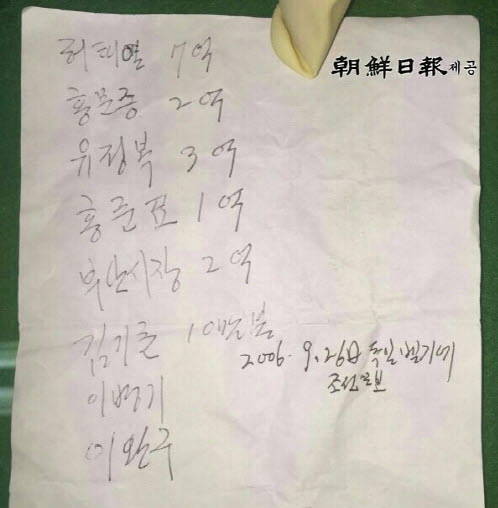 朝鮮日報 제공
허태열 7억
홍문종 2억
유정복 3억
홍준표 1억
부산시장 2억
김기춘 10만불
2006. 9. 26日 독일 벨기에
조선일보
이병기
이완구